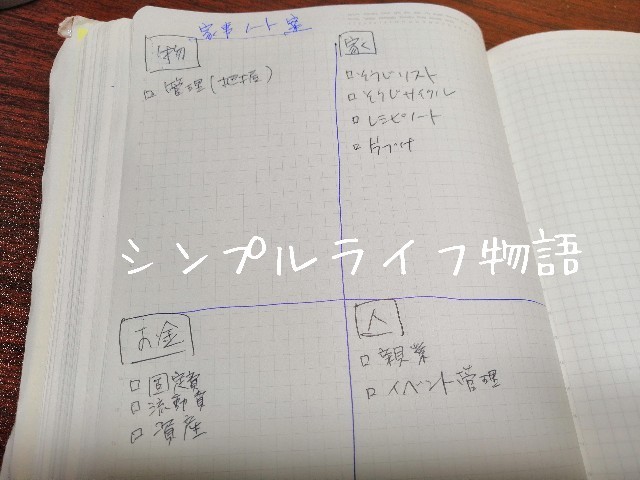 家事ノート案
物
□ 管理(把握)
家
□ そうじリスト
□ そうじサイクル
□ レシピノート
□ 片づけ
シンプルライフ物語
お金
□ 固定費
□ 流動費
□ 資産
人
□ 親業
□ イベント管理